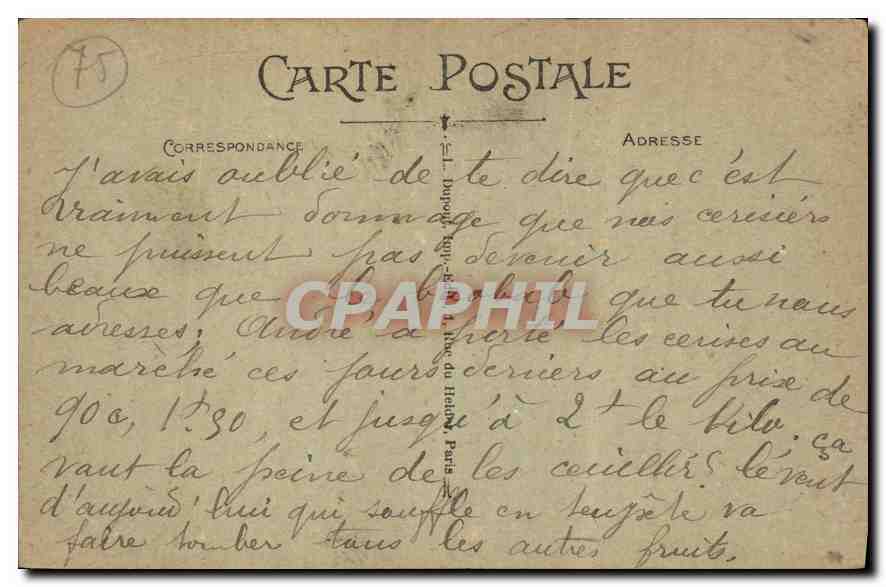 75
CARTE POSTALE
CORRESPONDANCE
ADRESSE
J'avais oublié de te dire que c'est
vraiment dommage que nos cerisiers
ne puissent pas devenir aussi
beaux que le baobab que tu nous
adresses. André a porté les cerises au
marché ces jours derniers au prix de
90c, 1f30, et jusqu'à 2f le kilo. ça
vaut la peine de les cueillir le vent
d'aujourd'hui qui souffle en tempête va
faire tomber tous les autres fruits.
Imp.-Edit. Rue du Helder, Paris
CPAPHIL